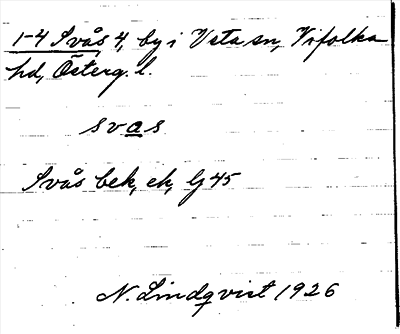 1-4 Svås, 4, by i Vsta sn, Vifolka
hd, Österg. l.
svas
Svås bek, ek, Lj 45
N. Lindqvist 1926